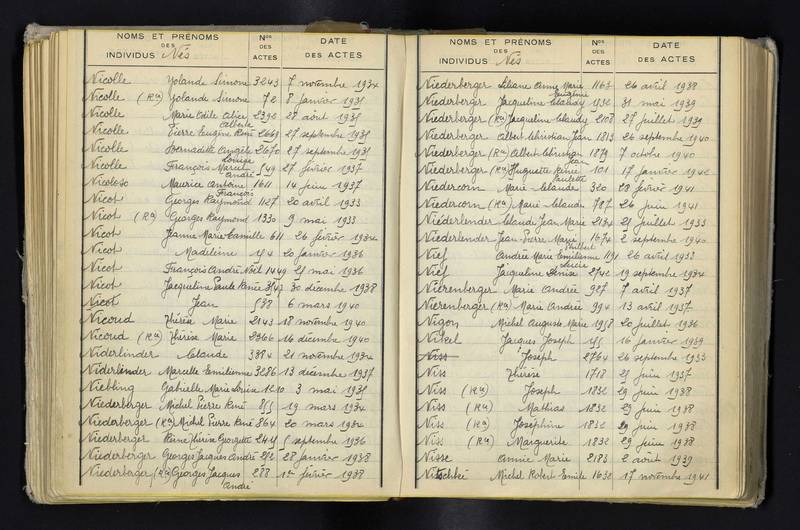 NOMS ET PRÉNOMS
DES
INDIVIDUS Nés
Nos
DES
ACTES
DATE
DES ACTES
Nicolle Yolande Simone 3243 7 novembre 1934
Nicolle (Ra) Yolande Simone 72 8 janvier 1935
Nicolle Marie Odile Alice 2392 28 août 1935
Alberte
Nicolle Pierre Eugène René 2669 27 septembre 1935
Nicolle Bernadette Angèle 2670 27 septembre 1935
Louise
Nicolle François Marcel 549 27 février 1937
André
Nicoloso Maurice Antoine 1611 14 juin 1937
François
Nicot Georges Raymond 1127 20 avril 1933
Nicot (Ra) Georges Raymond 1330 9 mai 1933
Nicot Jeanne Marie Camille 611 26 février 1934
Nicot Madeleine 154 20 janvier 1936
Nicot François André Noël 1449 25 mai 1936
Nicot Jacqueline Paule Renée 3547 30 décembre 1938
Nicot Jean 538 6 mars 1940
Nicoud Thérèse Marie 2143 18 novembre 1940
Nicoud (Ra) Thérèse Marie 2366 16 décembre 1940
Niderlinder Claude 3384 21 novembre 1934
Niderlender Marcelle Emilienne 3286 13 décembre 1937
Niebling Gabrielle Marie Louise 1210 3 mai 1935
Niederberger Michel Pierre René 855 19 mars 1934
Niederberger (Ra) Michel Pierre René 864 20 mars 1934
Niederberger Renée Thérèse Georgette 2425 5 septembre 1936
Niederberger Georges Jacques André 252 28 janvier 1938
Niederberger (Ra) Georges Jacques 288 1er février 1938
André
NOMS ET PRÉNOMS
DES
INDIVIDUS Nés
Nos
DES
ACTES
DATE
DES ACTES
Niederberger Liliane Anne Marie 1163 26 avril 1938
Eugénie
Niederberger Jacqueline Claudy 1532 31 mai 1939
Niederberger (Ra) Jacqueline Claudy 2108 27 juillet 1939
Niederberger Albert Christian Jean 1813 26 septembre 1940
Niederberger (Ra) Albert Christian 1879 7 octobre 1940
Jean
Niederberger (Ra) Huguette Renée 101 17 janvier 1942
Paulette
Niedercorn Marie Claude 320 28 février 1941
Niedercorn (Ra) Marie Claude 787 26 juin 1941
Niederlender Claude Jean Marie 2134 21 juillet 1933
Niederlender Jean Pierre Marie 1674 2 septembre 1940
Philbert
Nief Andrée Marie Emilienne 1191 26 avril 1933
Lucie
Nief Jacqueline Denise 2742 19 septembre 1934
Nierenberger Marie Andrée 927 7 avril 1937
Nierenberger (Ra) Marie Andrée 994 13 avril 1937
Nigon Michel Auguste Marie 1958 20 juillet 1936
Nikel Jacques Joseph 145 16 janvier 1939
Niss Joseph 2764 26 septembre 1933
Niss Thérèse 1718 25 juin 1937
Niss (Ra) Joseph 1832 29 juin 1938
Niss (Ra) Mathias 1832 29 juin 1938
Niss (Ra) Joséphine 1832 29 juin 1938
Niss (Ra) Marguerite 1832 29 juin 1938
Nisse Annie Marie 2183 2 août 1939
Nitschké Michel Robert Emile 1632 17 novembre 1941